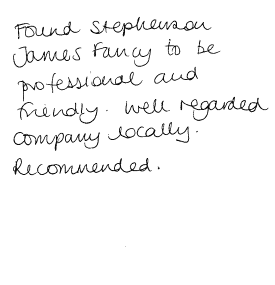 Found Stephenson
James Fancy to be
professional and
friendly. Well regarded
company locally.
Recommended.